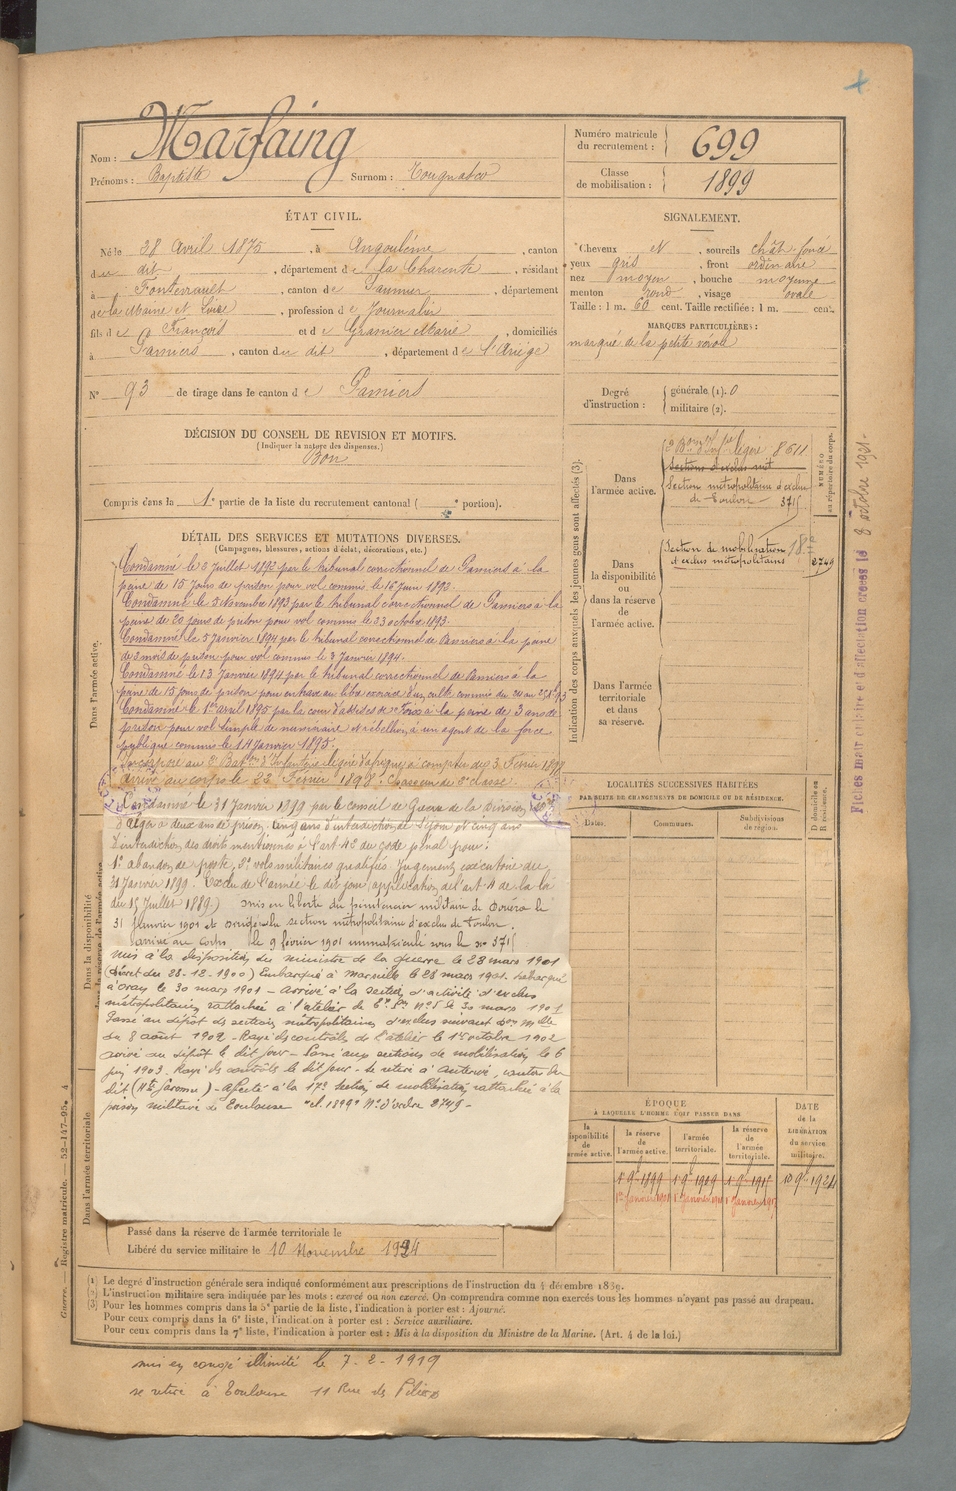 Nom : Marfaing
Prénoms : Baptiste Surnom : Tougnasco
Numéro matricule du recrutement : 699
Classe de mobilisation : 1899
ÉTAT CIVIL.
Né le 28 Avril 1875, à Angoulême, canton
du dit, département de la Charente, résidant
à Fontevrault, canton de Saumur, département
de la Maine et Loire, profession de Journalier
fils de François et de Granier Marie, domiciliés
à Pamiers, canton du dit, département de l'Ariège
N° 93 de tirage dans le canton de Pamiers
SIGNALEMENT.
Cheveux N, sourcils chât. foncé
yeux gris, front ordinaire
nez moyen, bouche moyenne
menton rond, visage ovale
Taille : 1 m. 60 cent. Taille rectifiée : 1 m. cent.
MARQUES PARTICULIÈRES :
marqué de la petite vérole
Degré d'instruction : générale (1). 0
militaire (2).
DÉCISION DU CONSEIL DE REVISION ET MOTIFS.
(Indiquer la nature des dispenses.)
Bon
Compris dans la 1e partie de la liste du recrutement cantonal ( e portion).
DÉTAIL DES SERVICES ET MUTATIONS DIVERSES.
(Campagnes, blessures, actions d'éclat, décorations, etc.)
Dans l'armée active.
Condamné le 6 Juillet 1892 par le tribunal correctionnel de Pamiers à la
peine de 15 Jours de prison pour vol commis le 16 Juin 1892.
Condamné le 5 Novembre 1893 par le tribunal correctionnel de Pamiers à la
peine de 20 jours de prison pour vol commis le 23 octobre 1893.
Condamné le 5 Janvier 1894 par le tribunal correctionnel de Pamiers à la peine
de 3 mois de prison pour vol commis le 3 Janvier 1894.
Condamné le 13 Janvier 1894 par le tribunal correctionnel de Pamiers à la
peine de 15 jours de prison pour entrave au libre exercice d'un culte commis du 24 au 25
Condamné le 1er avril 1895 par la cour d'assises de Foix à la peine de 3 ans de
prison pour vol simple de numéraire et rébellion à un agent de la force
publique commis le 14 Janvier 1895.
Incorporé au 2e Bat.on d'Infanterie légère d'afrique à compter du 3 Février 1898
Arrivé au corps le 22 Février 1898. Chasseur de 2e classe.
Condamné le 31 Janvier 1899 par le Conseil de Guerre de la Division
d'Alger à deux ans de prison. cinq ans d'interdiction de séjour et cinq ans
d'interdiction des droits mentionnés à l'art. 42 du code pénal pour :
1° abandon de poste, 2° vols militaires qualifiés. Jugement exécutoire du
31 Janvier 1899. Exclu de l'armée le dit jour (application de l'art. 4 de la loi
du 15 Juillet 1889.) mis en liberté du pénitencier militaire de Douéra le
31 janvier 1901 et dirigé sur la section métropolitaine d'exclus de Toulon.
Arrivé au corps le 9 février 1901 immatriculé sous le n° 3715
Mis à la disposition du ministre de la guerre le 23 mars 1901
(Décret du 28-12-1900) Embarqué à Marseille le 28 mars 1901. Débarqué
à Oran le 30 mars 1901 – Arrivé à la section d'activité d'exclus
métropolitains rattachée à l'atelier de T. P. N° 5 le 30 mars 1901
Passé au dépôt des sections métropolitaines d'exclus suivant Don Mlle
du 8 août 1902 – Rayé des contrôles de l'atelier le 1er octobre 1902
arrivé au dépôt le dit jour – Passé aux sections de mobilisation le 6
1903. Rayé des contrôles le dit jour – se retire à Auterive, canton du
dit (Hte Garonne) – Affecté à la 17e section de mobilisation rattachée à la
prison militaire de Toulouse "cl. 1899" N° d'ordre 2749 –
Dans la disponibilité
ou dans la réserve de l'armée active.
Dans l'armée territoriale
Passé dans la réserve de l'armée territoriale le
Libéré du service militaire le 10 Novembre 1924
Indication des corps auxquels les jeunes gens sont affectés (3).
Dans l'armée active.
légère 8611
Sections d'exclus mét
Section métropolitaine d'exclus
de Toulon – 3715
NUMÉRO au répertoire du corps.
Dans la disponibilité ou dans la réserve de l'armée active.
Section de mobilisation
d'exclus métropolitains 2749
Dans l'armée territoriale et dans sa réserve.
LOCALITÉS SUCCESSIVES HABITÉES
PAR SUITE DE CHANGEMENTS DE DOMICILE OU DE RÉSIDENCE.
Dates. Communes. Subdivisions de région. D domicile ou R résidence.
ÉPOQUE
À LAQUELLE L'HOMME DOIT PASSER DANS
DATE de la LIBÉRATION du service militaire.
la disponibilité de l'armée active. la réserve de l'armée active. l'armée territoriale. la réserve de l'armée territoriale.
1er 9bre 1899 1er 9bre 1909 1er 9bre 1915 10 9bre 1924
1er Janvier 1901 1er Janvier 1911 1er Janvier 1917
Fiches matriculaire et d'affectation créées le 8 octobre 1931.
Guerre. — Registre matricule. — 52-147-95. 4
(1) Le degré d'instruction générale sera indiqué conformément aux prescriptions de l'instruction du 4 décembre 1889.
(2) L'instruction militaire sera indiquée par les mots : exercé ou non exercé. On comprendra comme non exercés tous les hommes n'ayant pas passé au drapeau.
(3) Pour les hommes compris dans la 5e partie de la liste, l'indication à porter est : Ajourné.
Pour ceux compris dans la 6e liste, l'indication à porter est : Service auxiliaire.
Pour ceux compris dans la 7e liste, l'indication à porter est : Mis à la disposition du Ministre de la Marine. (Art. 4 de la loi.)
mis en congé illimité le 7-2-1919
se retire à Toulouse 11 Rue des Filieres